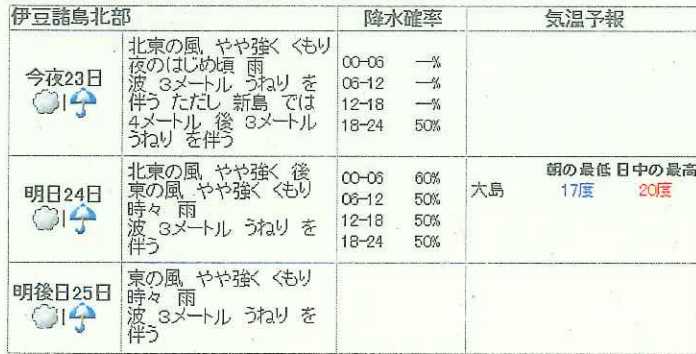 伊豆諸島北部 降水確率 気温予報
今夜23日
北東の風 やや強く くもり
夜のはじめ頃 雨
波 3メートル うねり を
伴う ただし 新島 では
4メートル 後 3メートル
うねり を伴う
00-06 --%
06-12 --%
12-18 --%
18-24 50%
明日24日
北東の風 やや強く 後
東の風 やや強く くもり
時々 雨
波 3メートル うねり を
伴う
00-06 60%
06-12 50%
12-18 50%
18-24 50%
朝の最低 日中の最高
大島 17度 20度
明後日25日
東の風 やや強く くもり
時々 雨
波 3メートル うねり を
伴う